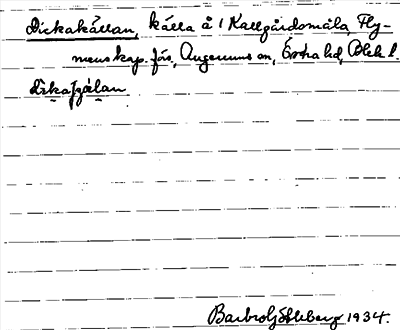 Dickakällan, källa å 1 Kallgårdsmåla, Fly-
menskap. förs, Augerums sn, Östra hd, Blek. l.
Barbro Söderberg 1934.